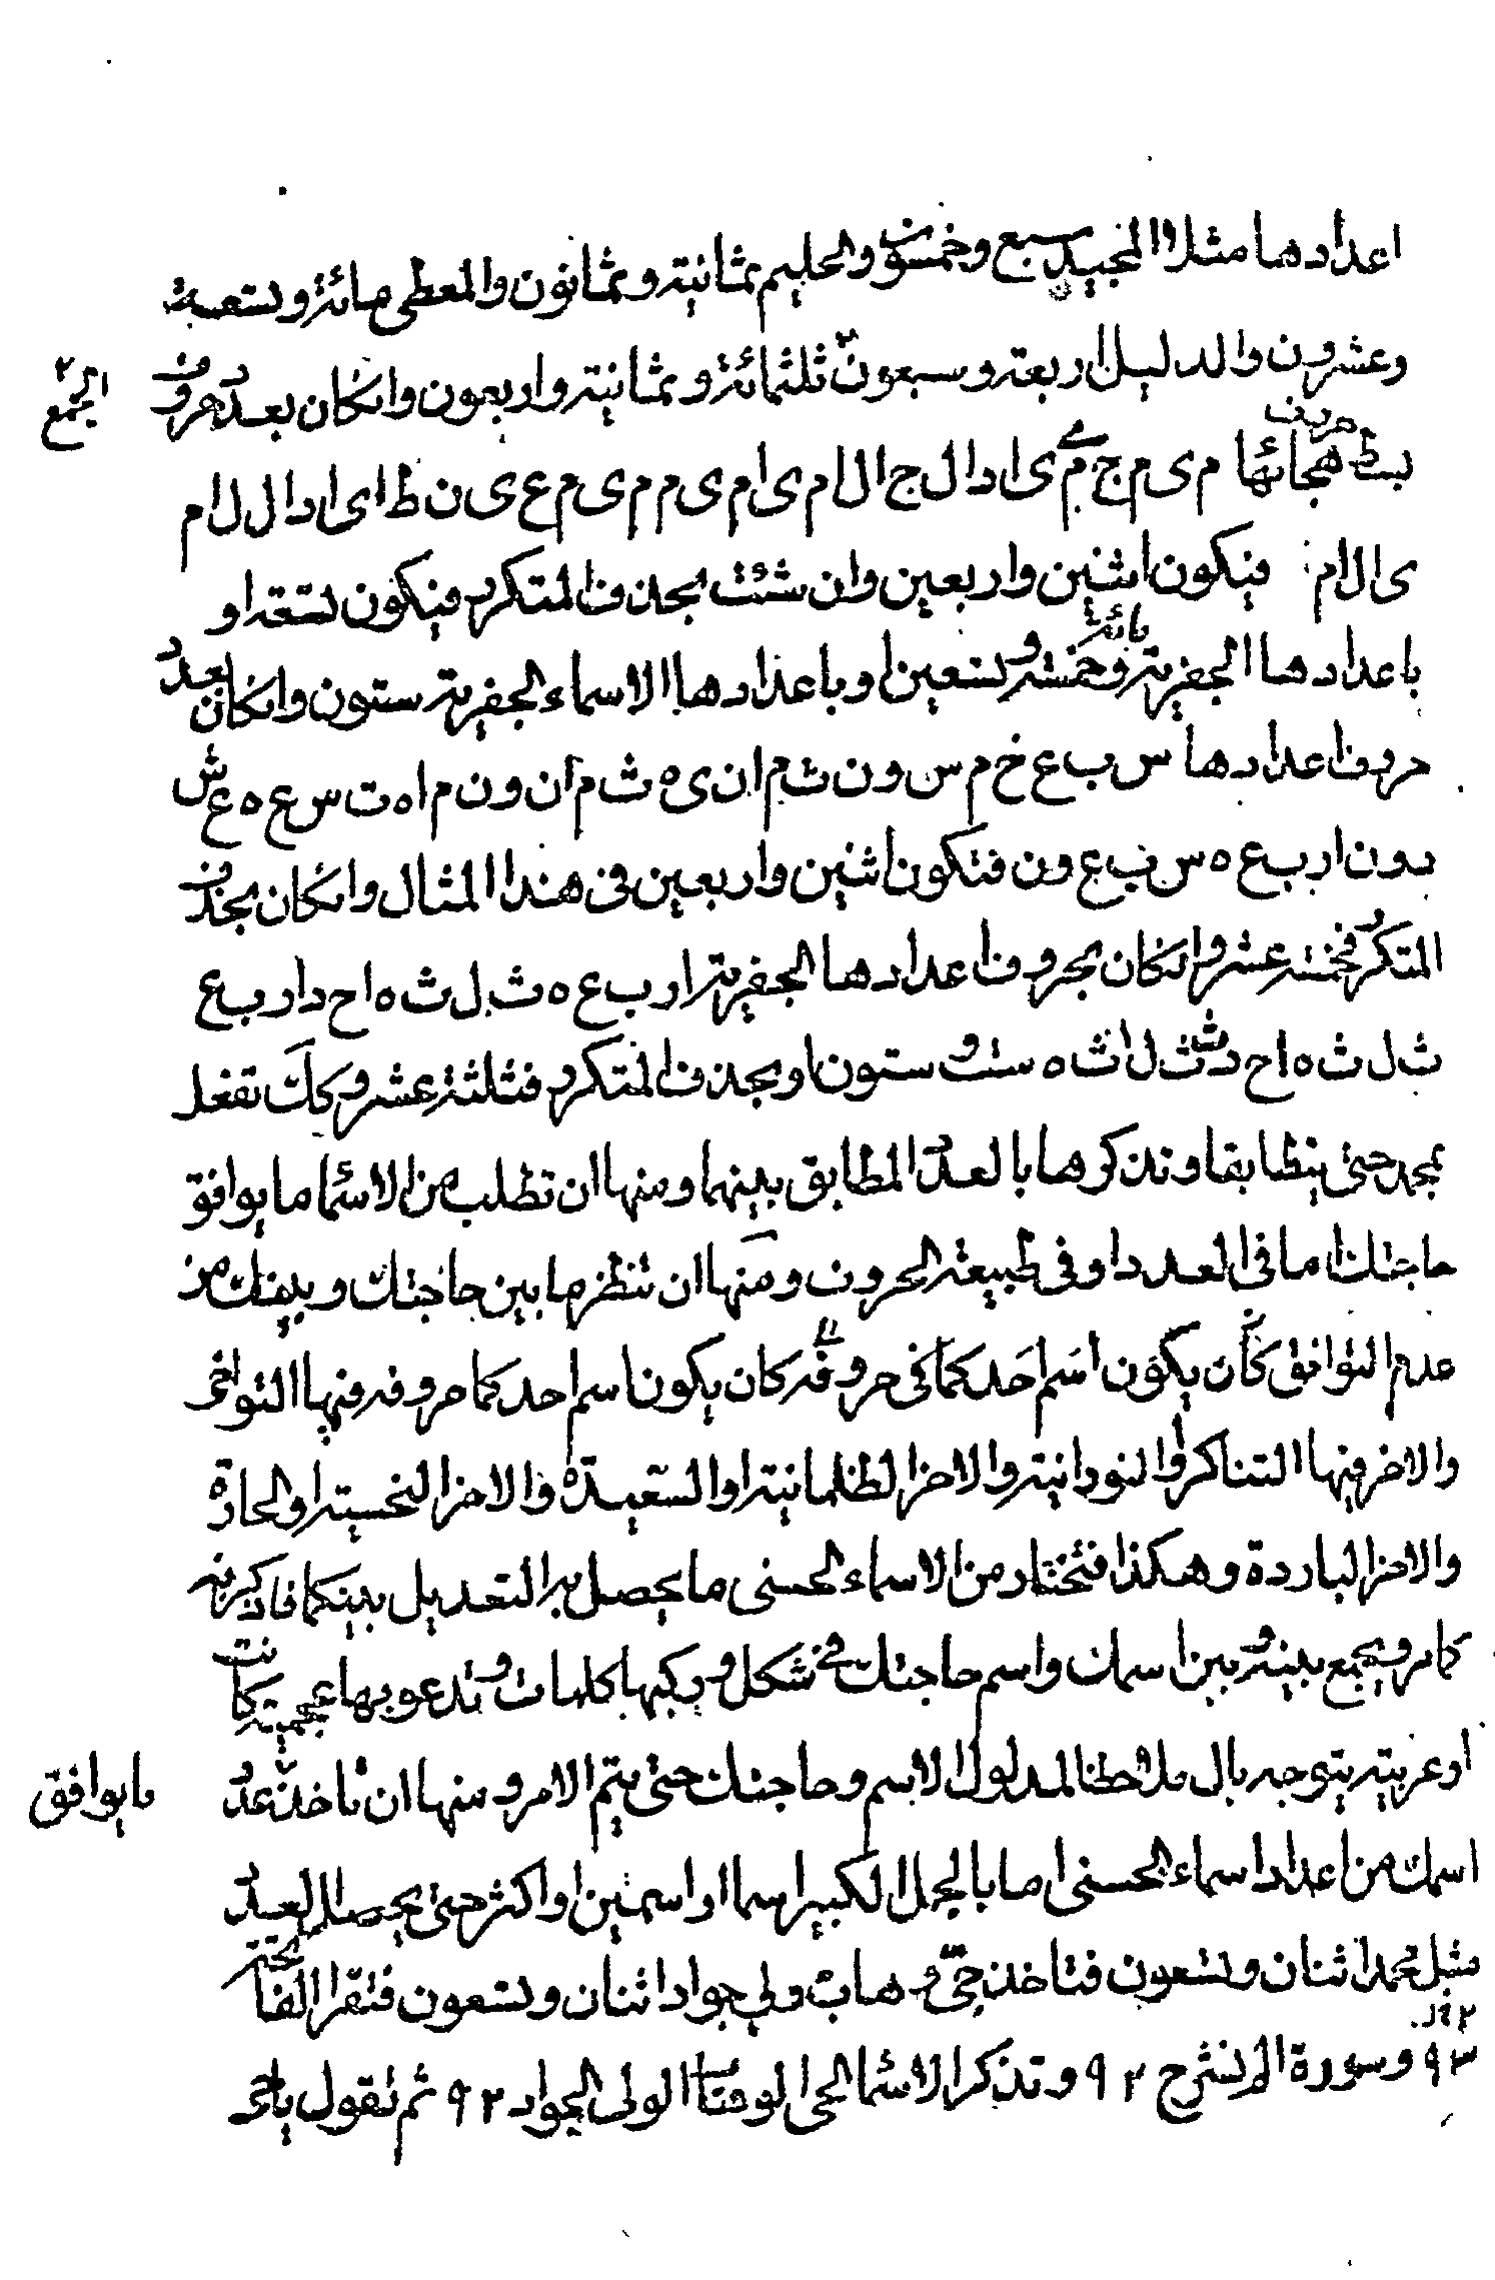 اعدادها مثلا المجيد سبع وخمسون والحليم ثمانية وثمانون والمعطى مائة وتسعة
وعشرون والدليل اربعة وسبعون ثلثمائة وثمانية واربعون وانكان بعدد حروف
الجمع
بسط حروف هجائها م ى م ج ى م ى ا د ا ل ح ا ل ا م ى ا م ى م م ى م ع ى ن ط ا ى ا د ا ل ل ا م
ى ا ل ا م فيكون اثنين واربعين وان شئت بحذف المتكرر فيكون تسعة او
باعدادها الجفرية مائة وخمسة وتسعين او باعدادها الاسماء الجفرية ستون وانكان بعدد
حروف اعدادها س ب ع خ م س و ن ث م ا ن ى ه ث م ا ن و ن م ا ه ت س ع ه ع ش
ر و ن ا ر ب ع ه س ب ع و ن فتكون اثنين واربعين فى هذا المثال وانكان بحذف
المتكرر فخمسة عشر وانكان بحروف اعدادها الجفرية ا ر ب ع ه ث ل ث ه ا ح د ا ر ب ع
ث ل ث ه ا ح د ث ل ا ث ه ست وستون او بحذف المتكرر فثلثة عشر وكك تفعل
بمحمد حتى يتطابقا وتذكرها بالعدد المطابق بينهما ومنها ان تطلب من الاسماء ما يوافق
حاجتك اما فى العدد او فى طبيعة الحروف ومنها ان تنظر ما بين حاجتك وبينك من
عدم التوافق كأن يكون اسم احدكما فى حروفه كان يكون اسم احدكما حروفه فيها التواخى
والاخر فيها التناكر او النورانية والاخر الظلمانية او السعيدة والاخر النحسية او الحارة
والاخر الباردة وهكذا فتختار من الاسماء الحسنى ما يحصل به التعديل بينكما فاذكر به
كما مر ويجمع بينه وبين اسمك واسم حاجتك فى شكل وركبها كلمات وتدعو بها عجمية كانت
او عربية بتوجه بال ملاحظا لمدلول الاسم وحاجتك حتى يتم الامر ومنها ان تأخذ عدد
ما يوافق
اسمك من اعداد اسماء الحسنى اما بالجمل الكبير اسما او اسمين او اكثر حتى يحصل العدد
مثل محمد اثنان وتسعون فتاخذ حى وهاب ولى جواد اثنان وتسعون فتقرا الفاتحة
٩٢ وسورة الم نشرح ٩٢ وتذكر الاسماء الحى الوهاب الولى الجواد ٩٢ ثم تقول ياحى